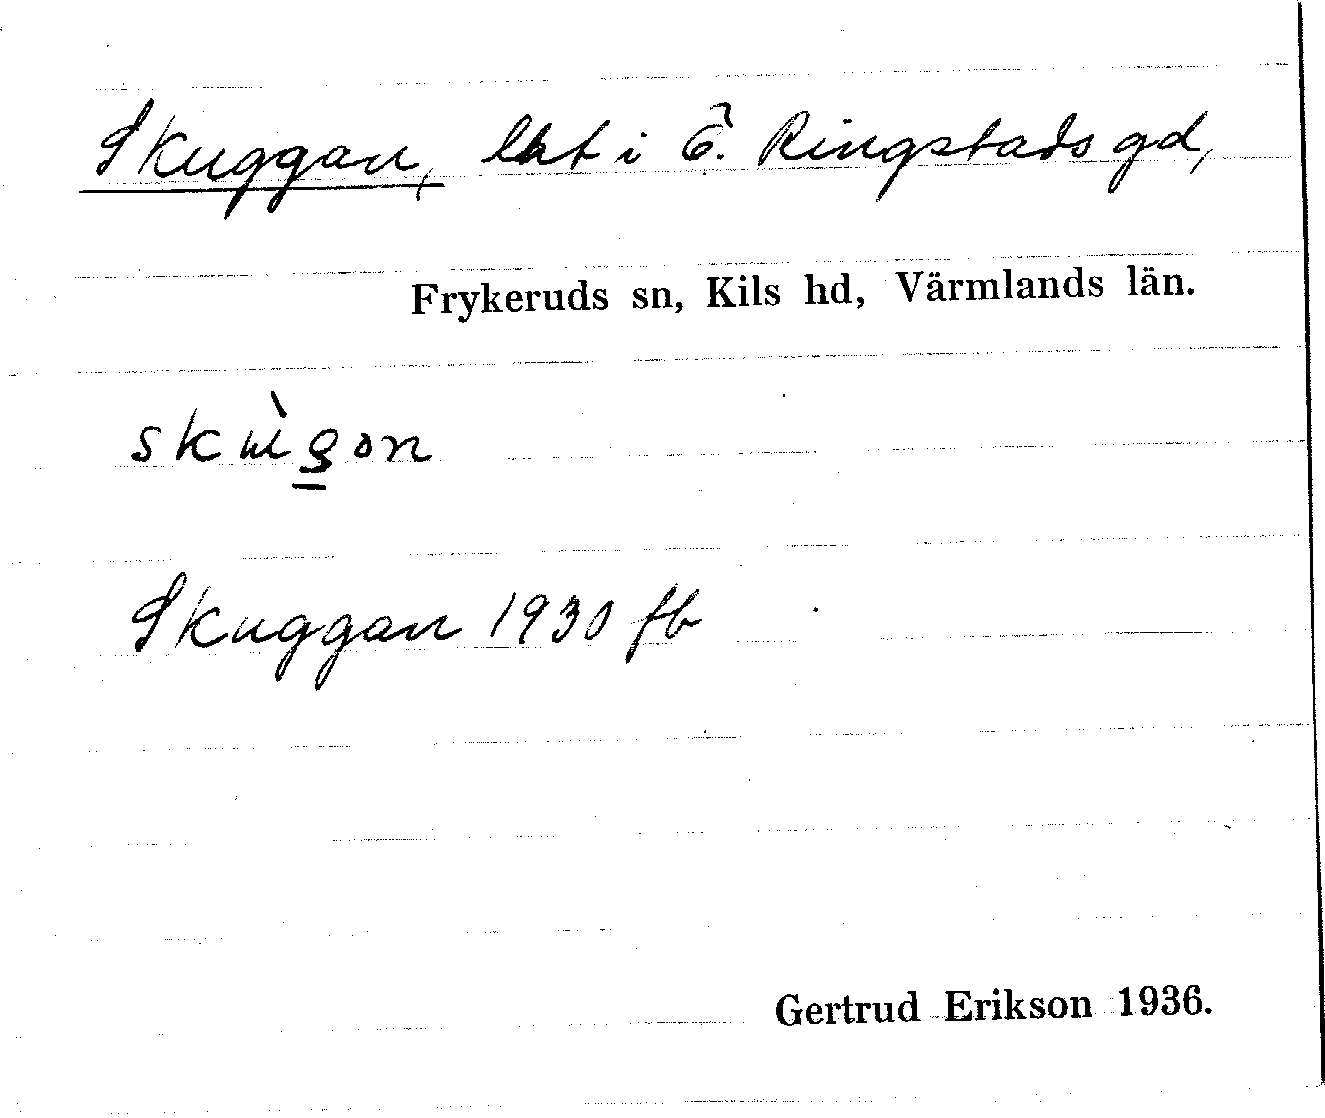 Skuggan, lht i Ö. Ringstads gd,
Frykeruds sn, Kils hd, Värmlands län.
Skuggan 1930 fb
Gertrud Erikson 1936.